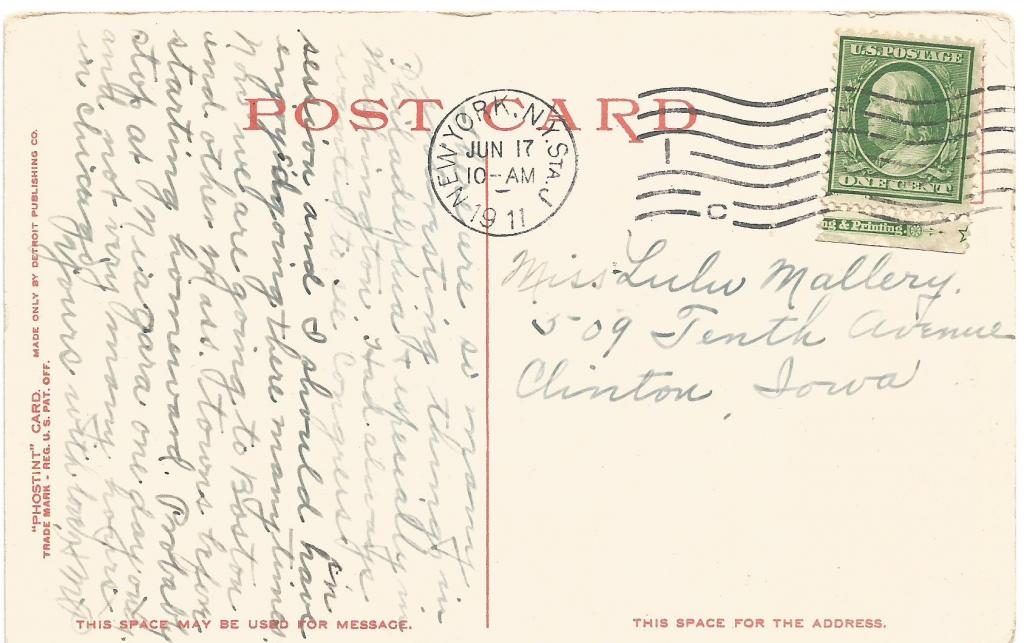 POST CARD
NEW YORK, N.Y. STA. J
JUN 17
10-AM
1911
C
U.S. POSTAGE
ONE CENT
ng & Printing.
Miss Lulu Mallery.
509 Tenth Avenue
Clinton, Iowa
were so many
interesting things in
Philadelphia & especially in
Washington. Had always
wanted to see Congress in
session and I should have
enjoyed going there many times
Now we are going to Boston
and other Mass. towns before
starting homeward. Probably
stop at Niagara one day only
and not very many hours
in Chicago
Yours with love
"PHOSTINT" CARD. MADE ONLY BY DETROIT PUBLISHING CO.
TRADE MARK - REG. U.S. PAT. OFF.
THIS SPACE MAY BE USED FOR MESSAGE.
THIS SPACE FOR THE ADDRESS.